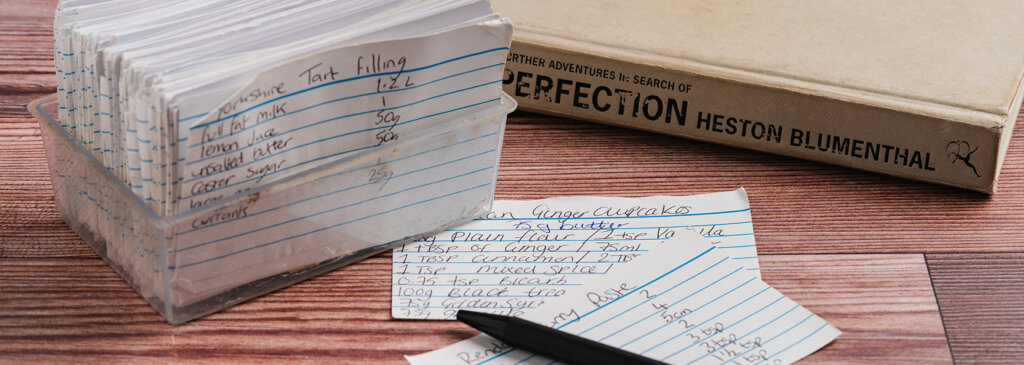 Yorkshire Tart filling
full fat milk 1.2 L
lemon juice 1
unsalted butter 50g
caster sugar 50g
large
currants 25g
FURTHER ADVENTURES IN SEARCH OF
PERFECTION HESTON BLUMENTHAL
Ginger cupcakes
75g butter
Plain flour / 2 tsp Vanilla
1 TBSP of Ginger / 75ml
1 TBSP cinnamon / 2
1 TSP mixed spice /
0.75 tsp Bicarb
100g Black treac
75g Golden Syr
Paste 2
4
5cm
2
3 tsp
3 tsp
1½ tsp
1 tsp